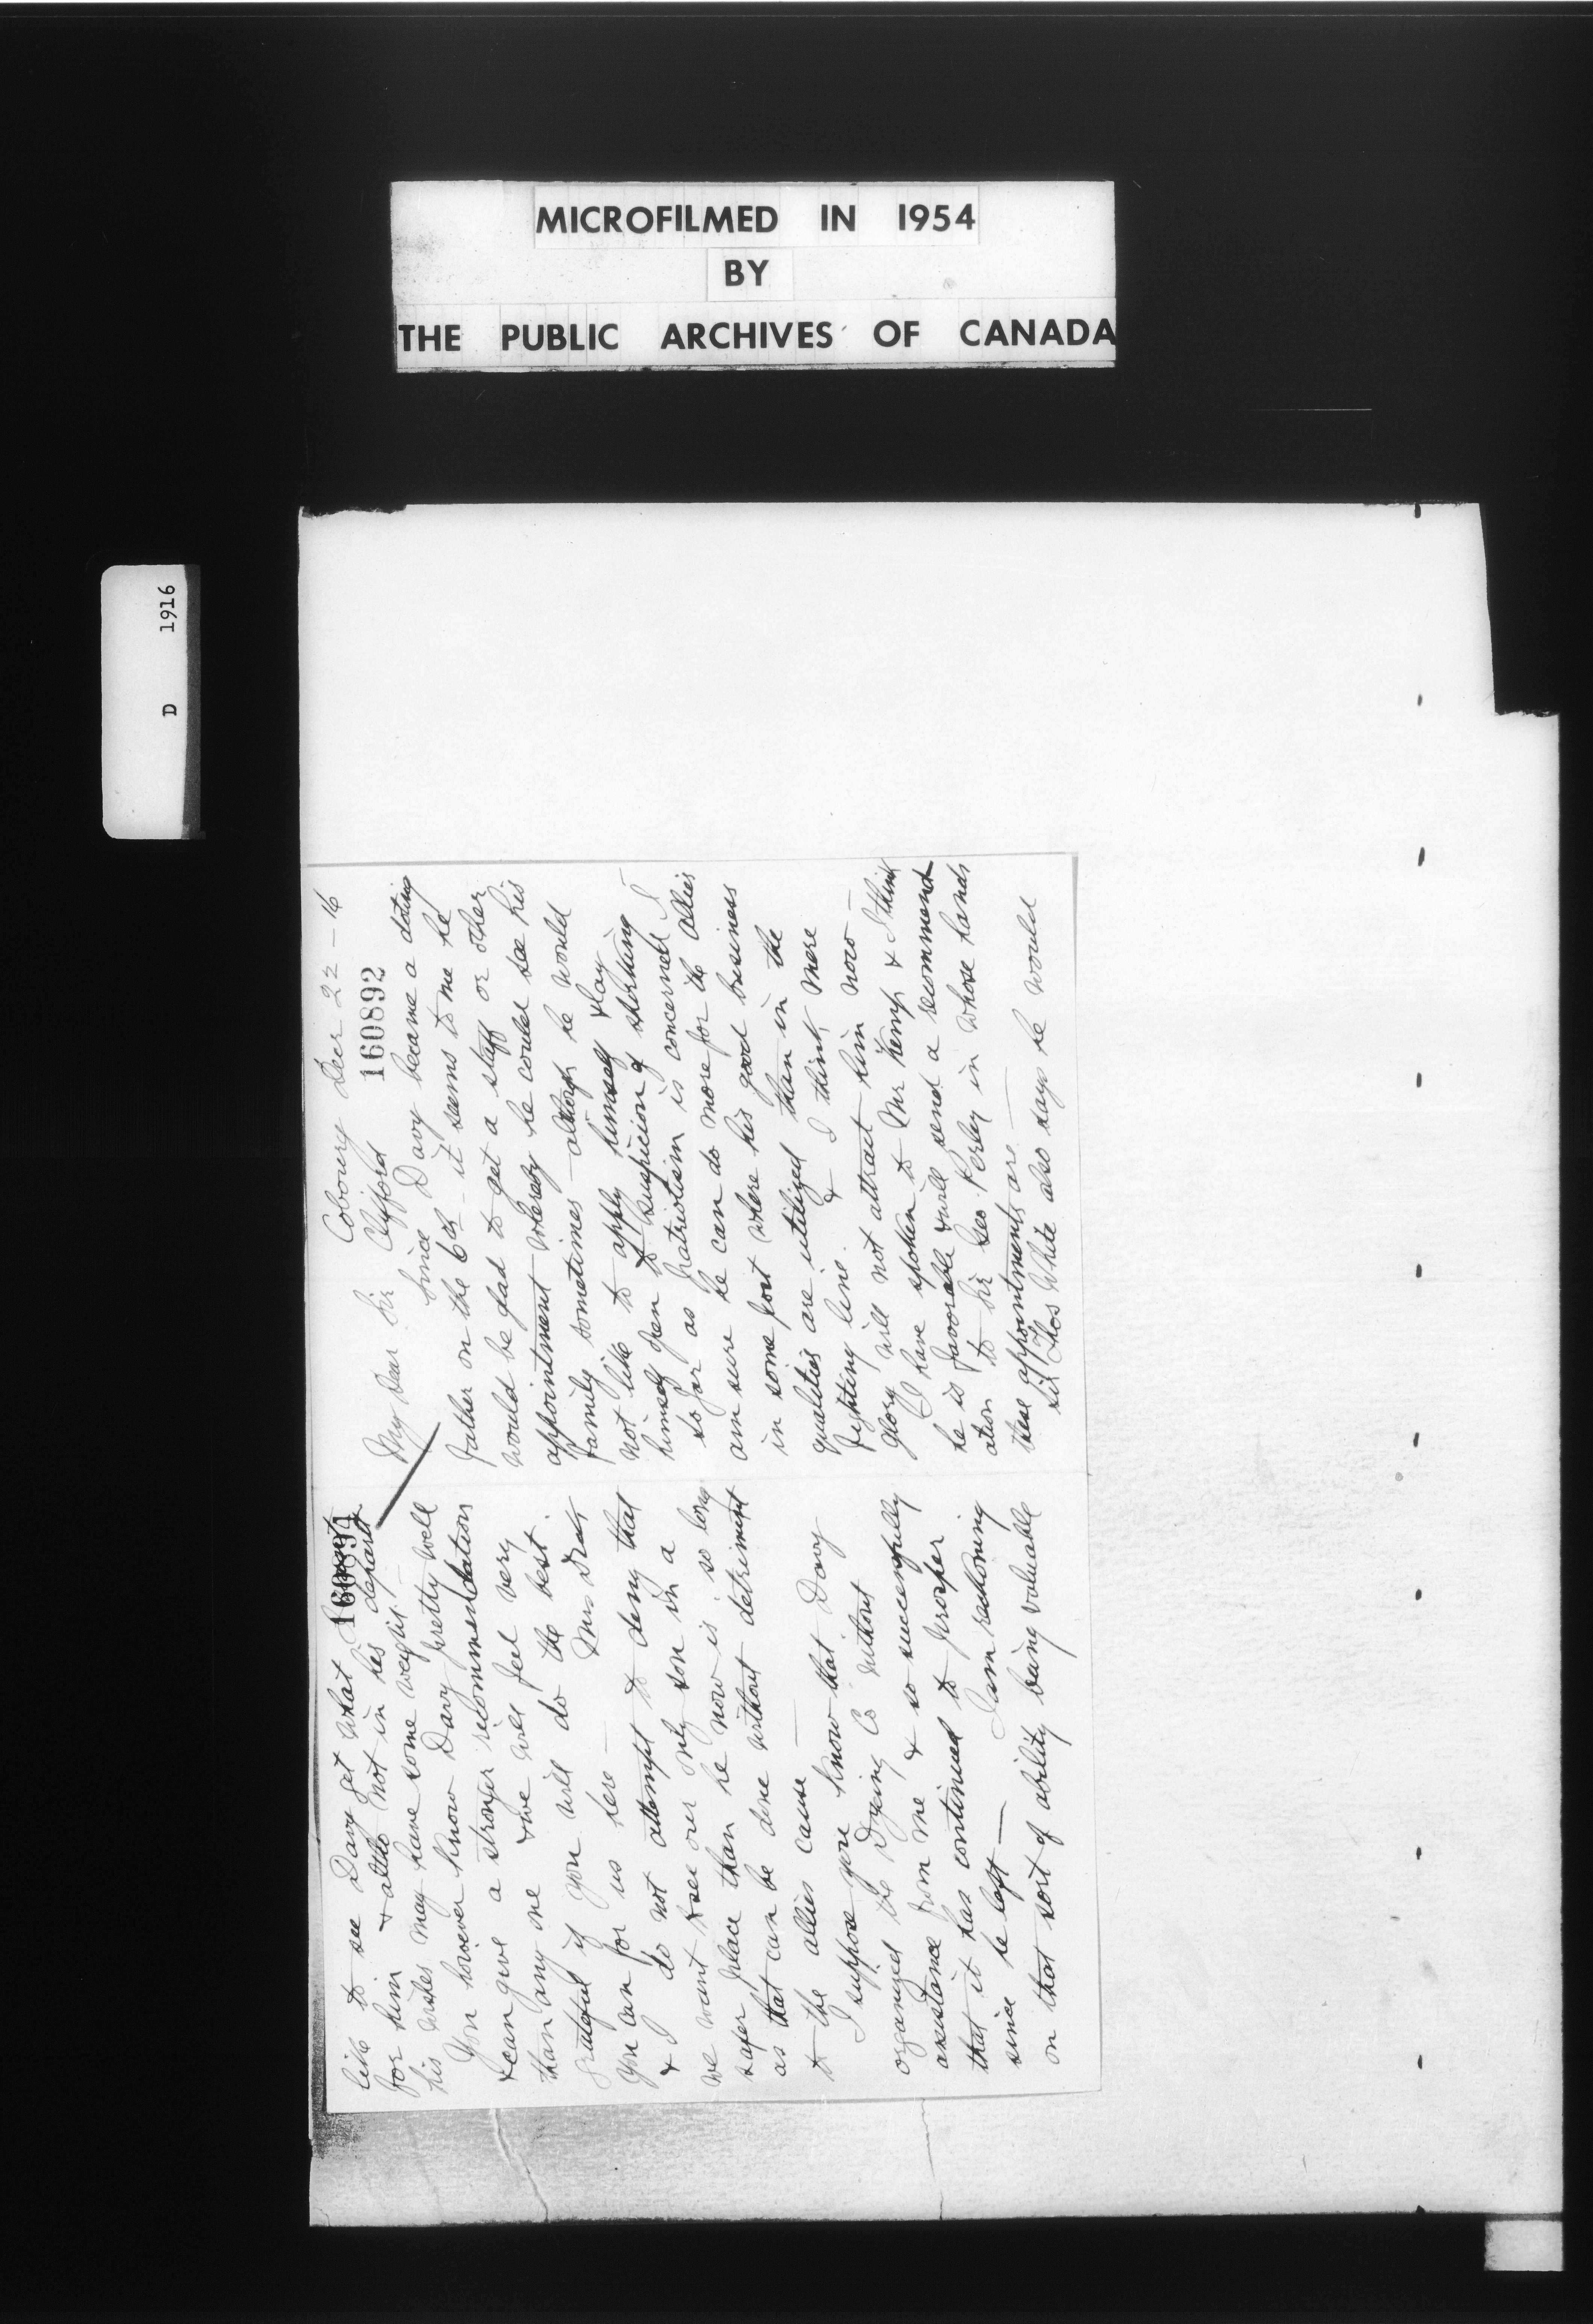 MICROFILMED IN 1954
BY
THE PUBLIC ARCHIVES OF CANADA
D 1916
Cobourg Decr 22 - 16
160892
My dear Sir Clifford
Since Davy became a doting
father on the 6th - it seems to me he
would be glad to get a staff or other
appointment whereby he could see his
family sometimes - although he would
not like to apply himself & lay
himself open to suspicion of shirking -
so far as patriotism is concerned I
am sure he can do more for the Allies
in some post where his good business
qualities are utilized than in the
fighting line. & I think mere
glory will not attract him now -
I have spoken to Mr Kemp & I think
he is favorable & will send a recommend
ation to Sir Geo. Perley in whose hands
these appointments are -
Sir Thos White also says he would
160894
like to see Davy get what
for him & altho not in his depart
his wishes may have some weight -
You however know Davy pretty well
& can give a stronger recommendation
than any one & we will feel very
grateful if you will do the best
you can for us here - Mrs
& I do not attempt to deny that
we want to see our only son in a
safer place than he now is so long
as that can be done without detriment
to the allies cause -
I suppose you know that Davy
organized the Dyeing Co without
assistance from me & so successfully
that it has continued to prosper
since he left - I am reckoning
on that sort of ability being valuable